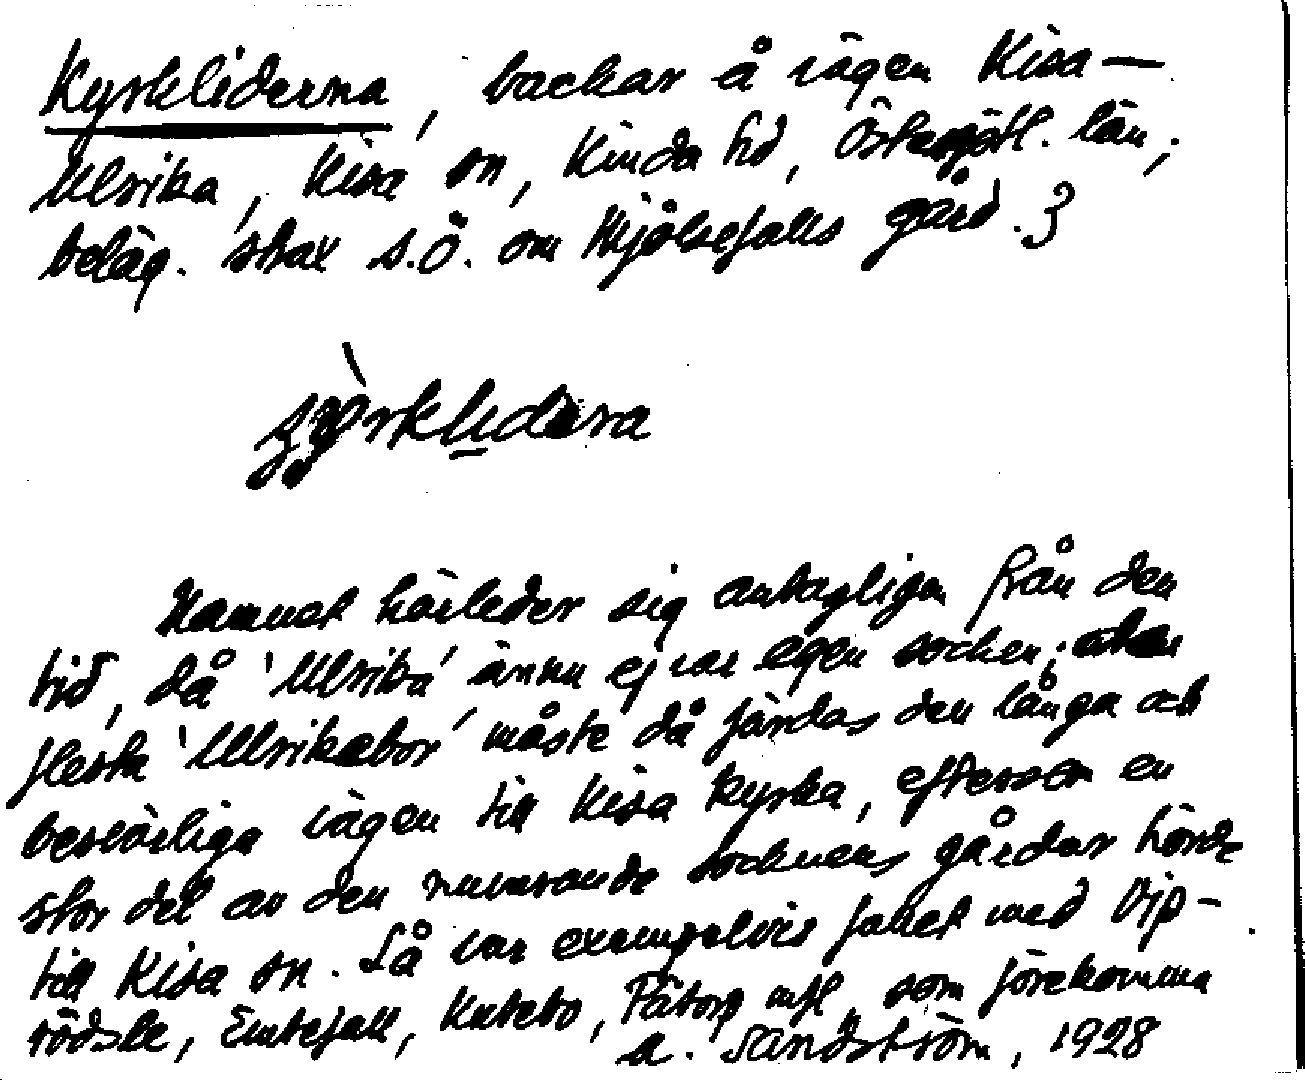 Kyrkliderna, backar å vägen Kisa—
Ulrika, Kisa sn, Kinda hd, Östergötl. län;
beläg. strax s.ö. om Mjölsefalls gård.
Namnet härleder sig antagligen från den
tid, då 'Ulrika' ännu ej var egen socken;
flesta 'Ulrikabor' måste då färdas den långa och
besvärliga vägen till Kisa kyrka, eftersom en
stor del av den nuvarande socknens gårdar hörde
till Kisa sn. Så var exempelvis fallet med Vip-
rödsle, Emtefall, Kutebo, Fätorp mfl. som förekomma
A. Sandström, 1928